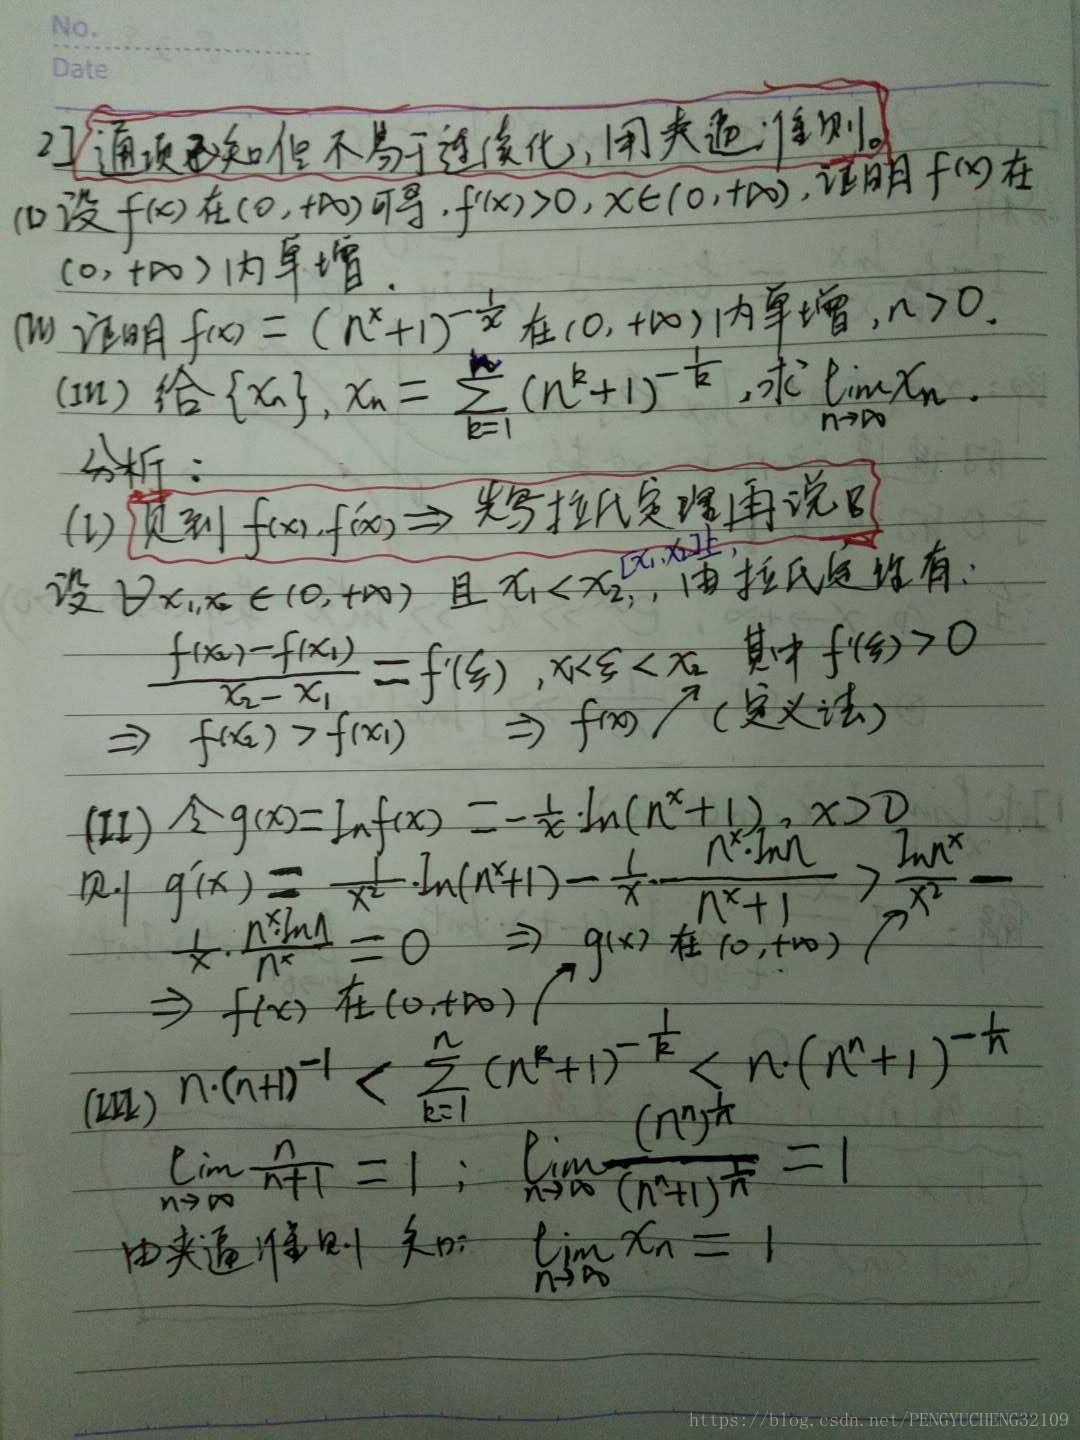 No.
Date
2] 通项已知但不易于连续化,用夹逼准则。
(I) 设 f(x) 在(0,+∞)可导,f'(x)>0,x∈(0,+∞),证明 f(x) 在
(0,+∞)内单增.
(II) 证明 f(x) = (n^x+1)^{-1/x} 在(0,+∞)内单增,n>0.
(III) 给{x_n}, x_n = ∑_{k=1}^{n} (n^k+1)^{-1/k},求 lim_{n→∞} x_n.
分析:
(I) 见到 f(x),f'(x) ⇒ 先写拉氏定理再说
[x₁,x₂]上,
设 ∀x₁,x₂∈(0,+∞) 且 x₁<x₂,,由拉氏定理有:
(f(x₂)-f(x₁))/(x₂-x₁) = f'(ξ), x₁<ξ<x₂ 其中 f'(ξ)>0
⇒ f(x₂)>f(x₁) ⇒ f(x)↗(定义法)
(II) 令 g(x)=ln f(x) = -1/x·ln(n^x+1), x>0
则 g'(x) = 1/x²·ln(n^x+1) - 1/x·(n^x·ln n)/(n^x+1) > ln n^x/x² -
1/x·(n^x·ln n)/n^x = 0 ⇒ g(x) 在(0,+∞)↗
⇒ f(x) 在(0,+∞)↗
(III) n·(n+1)^{-1} < ∑_{k=1}^{n} (n^k+1)^{-1/k} < n·(n^n+1)^{-1/n}
lim_{n→∞} n/(n+1) = 1; lim_{n→∞} (n^n)^{1/n}/(n^n+1)^{1/n} = 1
由夹逼准则知: lim_{n→∞} x_n = 1
https://blog.csdn.net/PENGYUCHENG32109